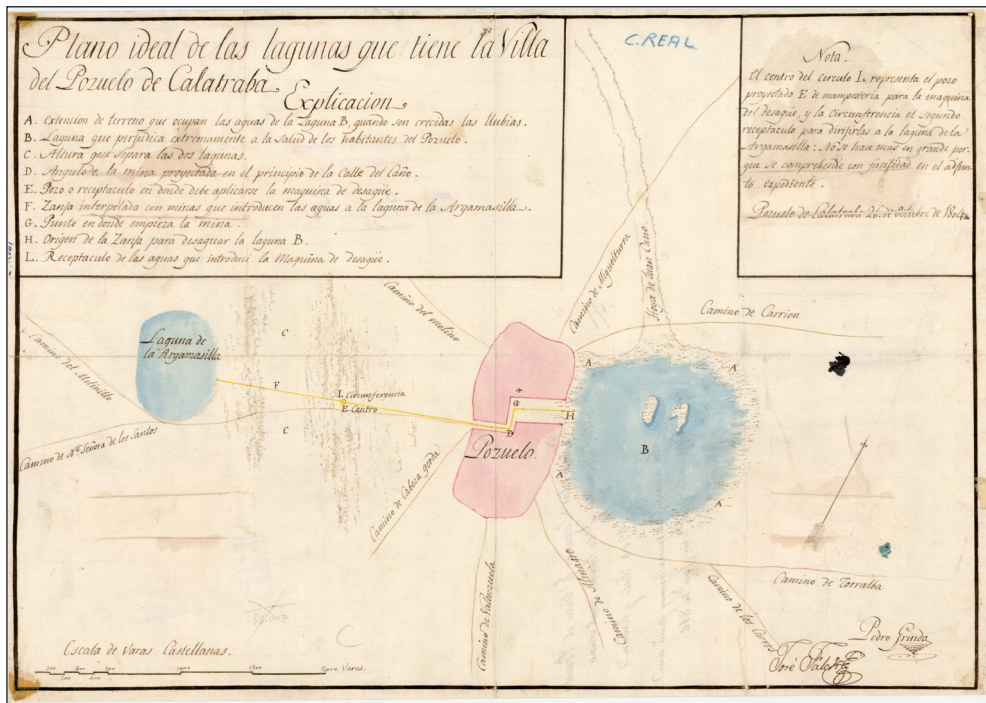 Plano ideal de las lagunas que tiene la Villa
del Pozuelo de Calatraba.
Explicacion.
A. extencion de terreno que ocupan las aguas de la Laguna B, quando son crecidas las llubias.
B. Laguna que perjudica extremamente a la Salud de los habitantes del Pozuelo.
C. Altura que separa las dos lagunas.
D. Angulo de la mina proyectada en el principio de la Calle del Caño.
E. Pozo o receptaculo en donde debe aplicarse la maquina de desagüe.
F. Zanja interpolada con minas que introducen las aguas a la laguna de la Argamasilla.
G. Punto en donde empieza la mina.
H. Origen de la Zanja para desaguar la laguna B.
L. Receptaculo de las aguas que introduci la Maquina de desagüe.
C. REAL
Nota.
El centro del circulo L representa el pozo
proyectado E de mamposteria para la maquina
del desagüe, y la circunferencia el segundo
receptaculo para dirijirlas a la laguna de la
Argamasilla: No se hace mas en grande por-
que se comprehende con facilidad en el adjun-
to expediente.
Pozuelo de Calatraba 26 de Octubre de 1804
Camino del molino
Camino de Miguelturra
Hoya de Juan Cano
Camino de Carrion
Laguna de
la Argamasilla
Camino del Molinillo
C
F
L Circunferencia
E Centro
C
G
D
H
A
A
A
A
B
Pozuelo.
Camino de Nª Señora de los Santos
Camino de Cabeza gorda
Camino de Valenzuela
Camino de Almagro
Camino de los Carros
Camino de Torralba
Escala de Varas Castellanas.
2000 Varas.
Pedro
José